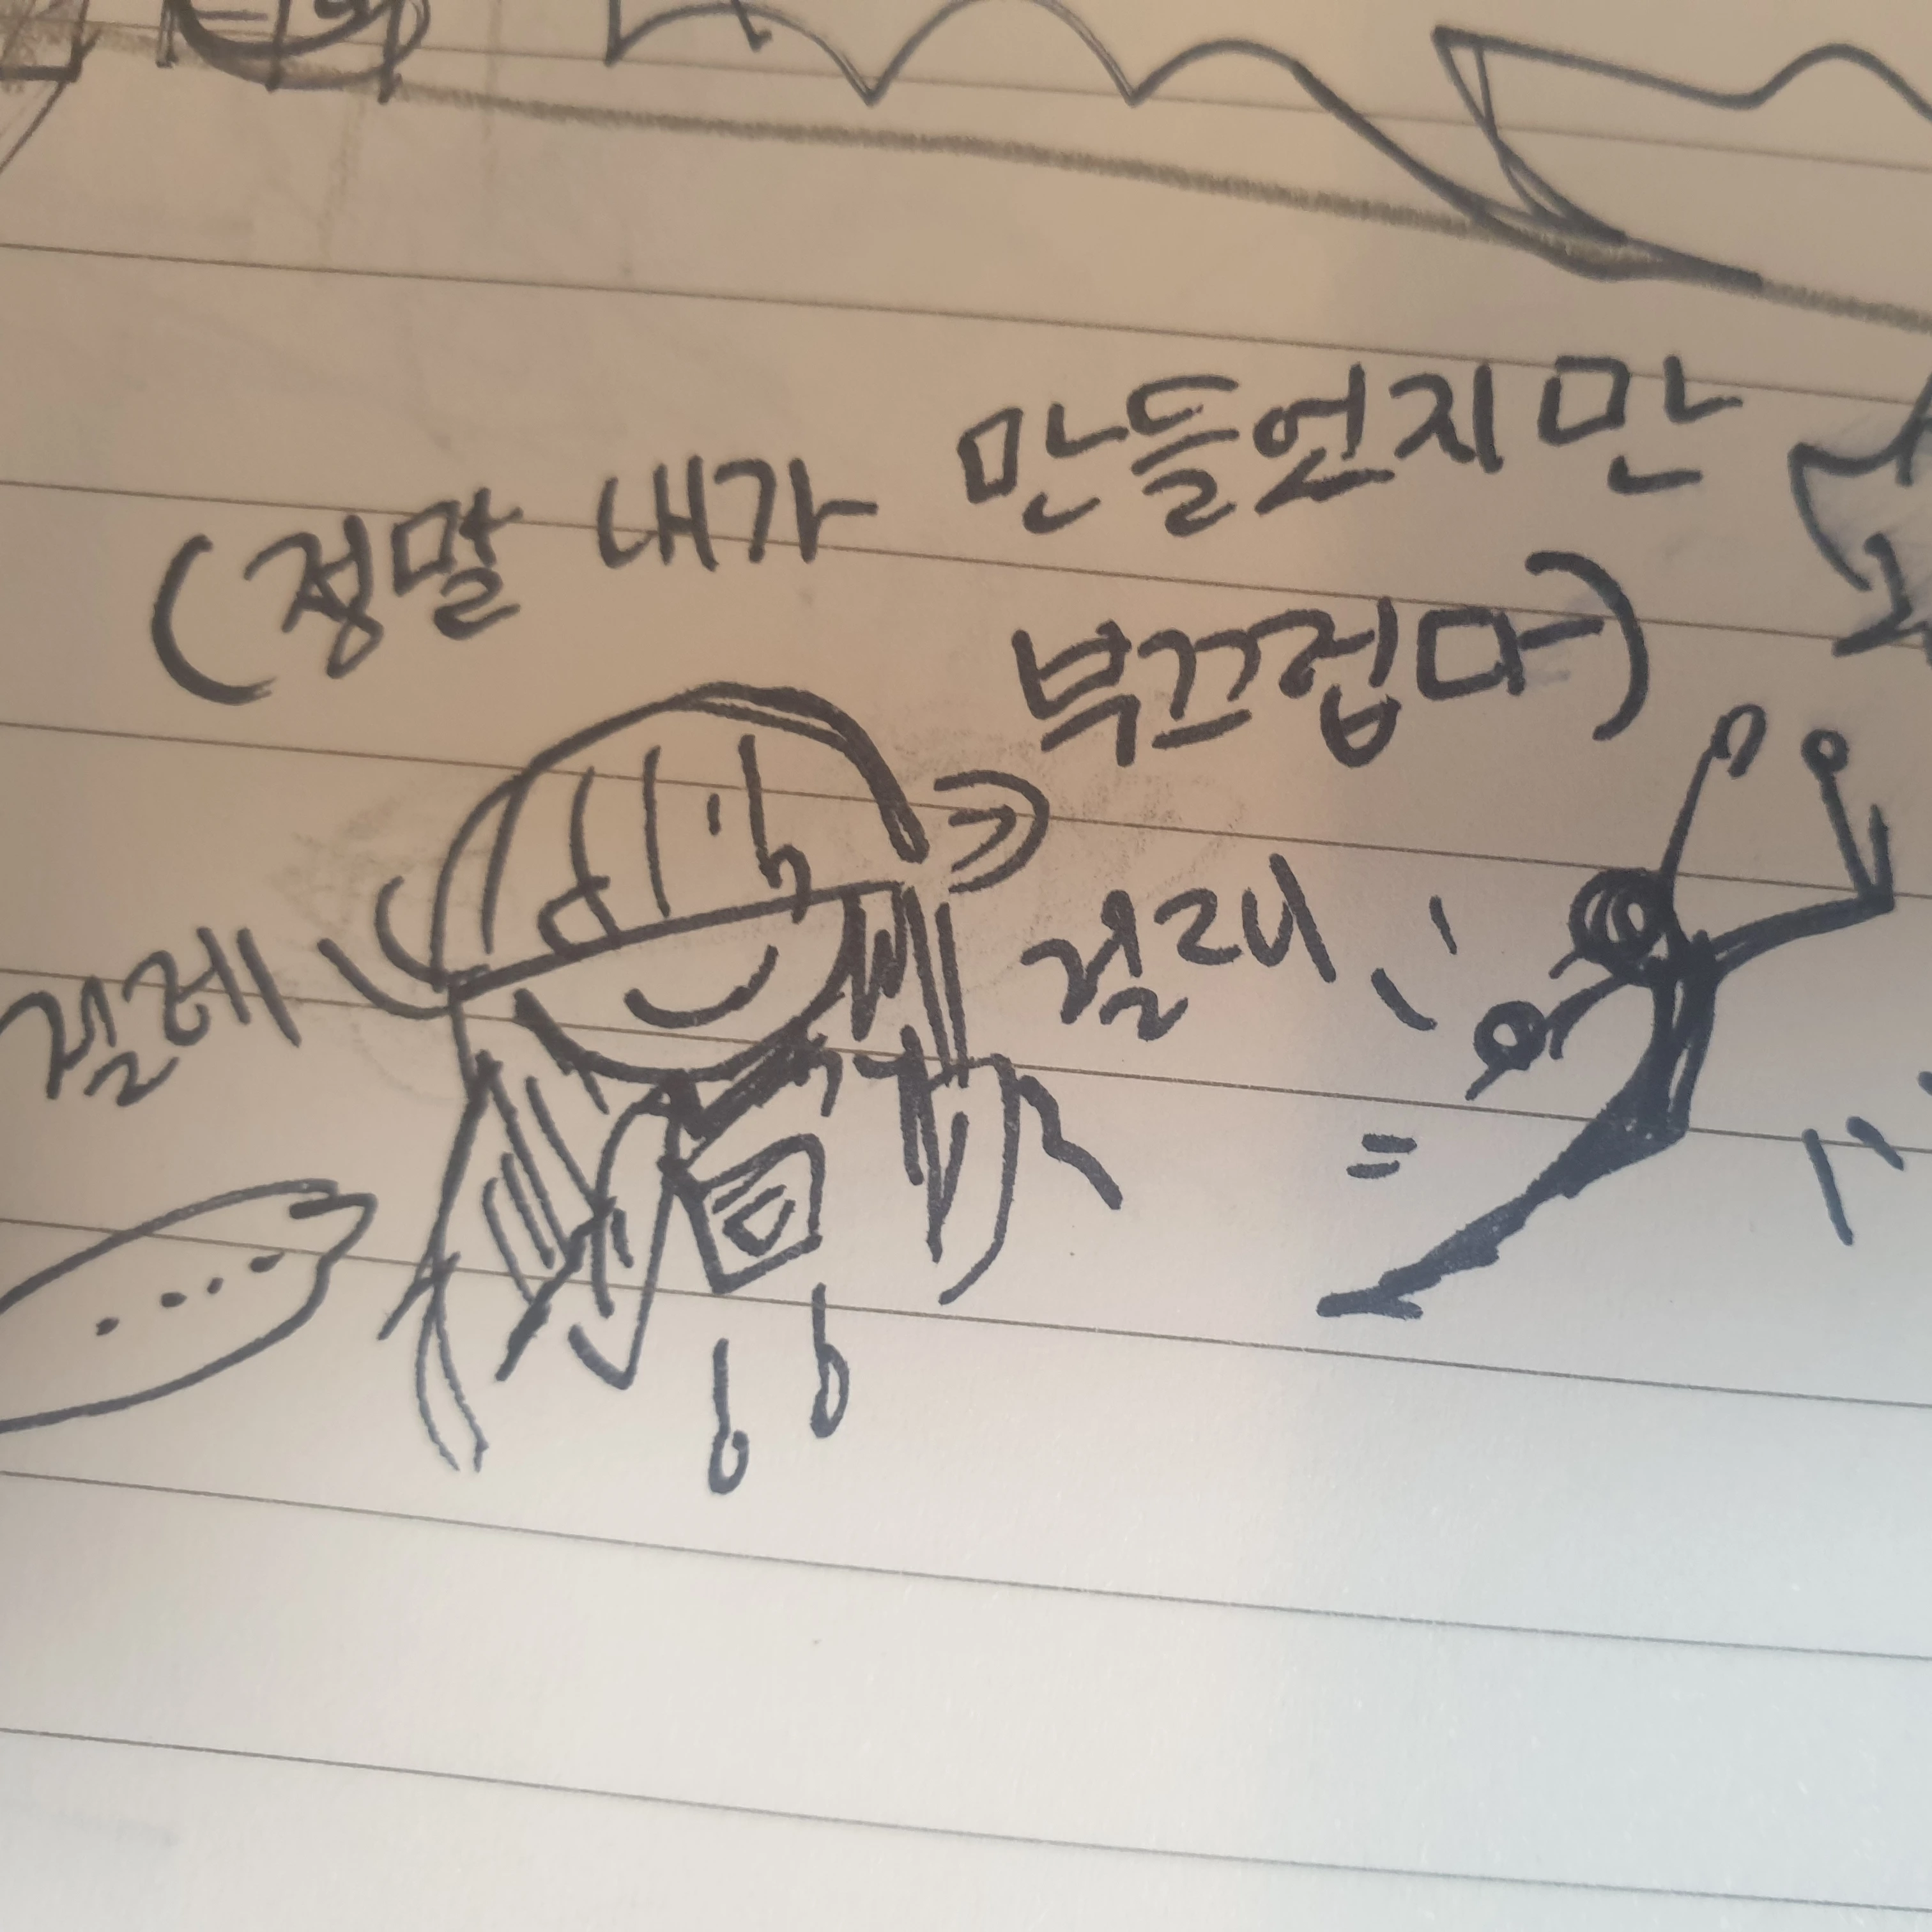 (정말 내가 만들언지만
부끄럽다)
걸레
걸래